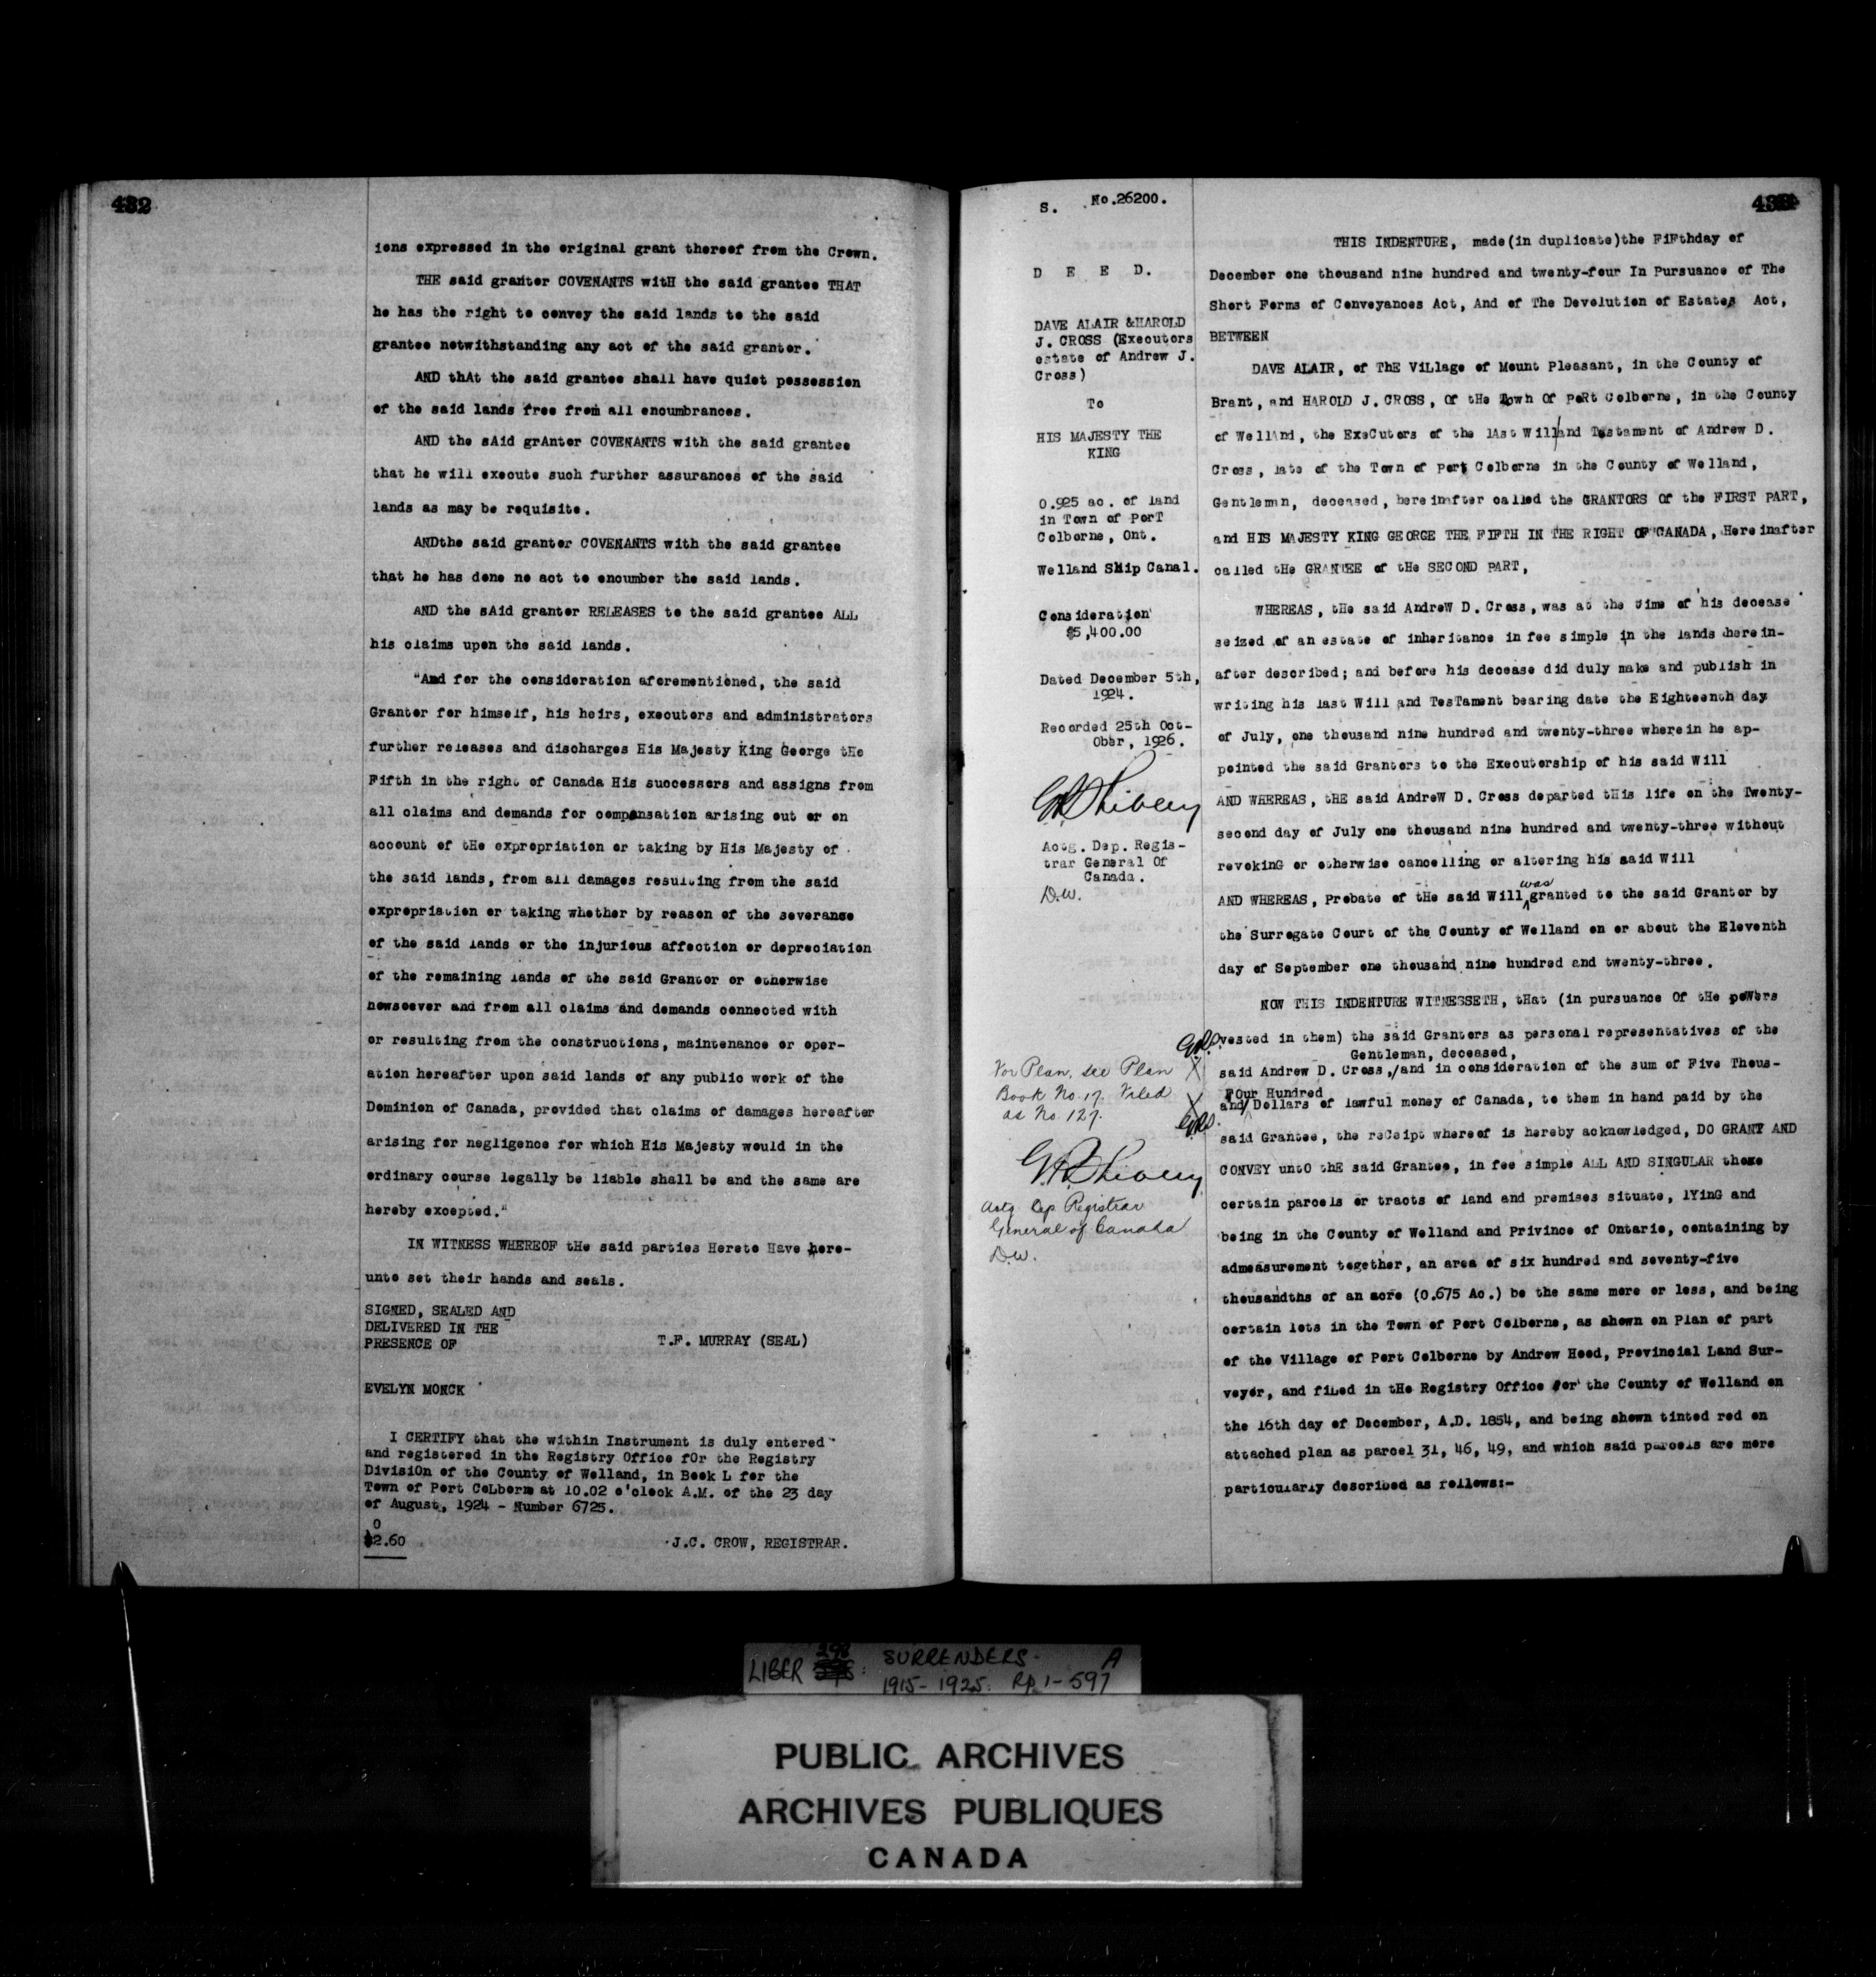 432
ions expressed in the original grant thereof from the Crown.
THE said grantor COVENANTS witH the said grantee THAT
he has the right to convey the said lands to the said
grantee notwithstanding any act of the said grantor.
AND thAt the said grantee shall have quiet possession
of the said lands free from all encumbrances.
AND the sAid grAntor COVENANTS with the said grantee
that he will execute such further assurances of the said
lands as may be requisite.
ANDthe said grantor COVENANTS with the said grantee
that he has done no act to encumber the said lands.
AND the sAid grantor RELEASES to the said grantee ALL
his claims upon the said lands.
"And for the consideration aforementioned, the said
Grantor for himself, his heirs, executors and administrators
further releases and discharges His Majesty King George tHe
Fifth in the right of Canada His successors and assigns from
all claims and demands for compensation arising out or on
account of tHe expropriation or taking by His Majesty of
the said lands, from all damages resulting from the said
expropriation or taking whether by reason of the severance
of the said lands or the injurious affection or depreciation
of the remaining lands of the said Grantor or otherwise
howsoever and from all claims and demands connected with
or resulting from the constructions, maintenance or oper-
ation hereafter upon said lands of any public work of the
Dominion of Canada, provided that claims of damages hereafter
arising for negligence for which His Majesty would in the
ordinary course legally be liable shall be and the same are
hereby excepted."
IN WITNESS WHEREOF tHe said parties Hereto Have here-
unto set their hands and seals.
SIGNED, SEALED AND
DELIVERED IN THE
PRESENCE OF T.F. MURRAY (SEAL)
EVELYN MONCK
I CERTIFY that the within Instrument is duly entered
and registered in the Registry Office fOr the Registry
DivisiOn of the County of Welland, in Book L for the
Town of Port CoLborne at 10.02 o'clock A.M. of the 23 day
of August, 1924 - Number 6725.
0
$2.60 J.C. CROW, REGISTRAR.
S. No.26200.
D E E D.
DAVE ALAIR &HAROLD
J. CROSS (Executors
estate of Andrew J.
Cross)
To
HIS MAJESTY THE
KING
0.925 ac. of land
in Town of PorT
Colborne, Ont.
Welland Ship Canal.
Consideration
$5,400.00
Dated December 5th,
1924.
Recorded 25th Oct-
Ober, 1926.
Actg. Dep. Regis-
trar General Of
Canada.
D.W.
For Plan, see Plan
Book No. 17. Filed
as No. 127.
Actg Dep Registrar
General of Canada
D.W.
THIS INDENTURE, made(in duplicate)the FiFthday of
December one thousand nine hundred and twenty-four In Pursuance of The
Short Forms of Conveyances Act, And of The Devolution of Estates Act,
BETWEEN
DAVE ALAIR, of ThE ViLlage of Mount Pleasant, in the County of
Brant, and HAROLD J. CROSS, Of tHe Town Of PoRt Colborne, in the County
of WellAnd, the ExeCutors of the lAst Will/and Testament of Andrew D.
Cross, late of the Town of Port Colborne in the County of Welland,
Gentleman, deceased, hereinafter called the GRANTORS Of the FIRST PART,
and HIS MAJESTY KING GEORGE THE FIFTH IN THE RIGHT OF CANADA, Hereinafter
called tHe GRANTEE of tHe SECOND PART,
WHEREAS, tHe said AndreW D. Cross, was at the time of his decease
seized of an estate of inheritance in fee simple in the lands herein-
after described; and before his decease did duly make and publish in
writing his last Will and TesTament bearing date the Eighteenth day
of July, one thousand nine hundred and twenty-three wherein he ap-
pointed the said Grantors to the Executorship of his said Will
AND WHEREAS, tHE said AndreW D. Cross departed tHis life on the Twenty-
second day of July one thousand nine hundred and twenty-three without
revokinG or otherwise cancelling or altering his said Will
was
AND WHEREAS, Probate of tHe said Will granted to the said Grantor by
the Surrogate Court of the County of Welland on or about the Eleventh
day of September one thousand nine hundred and twenty-three.
NOW THIS INDENTURE WITNESSETH, tHat (in pursuance Of tHe poWers
vested in them) the said Grantors as personal representatives of the
Gentleman, deceased,
said Andrew D. Cross,/and in consideration of the sum of Five Thous-
FOur Hundred
and/Dollars of lawful money of Canada, to them in hand paid by the
said Grantee, the reCeipt whereof is hereby acknowledged, DO GRANT AND
CONVEY untO thE said Grantee, in fee simple ALL AND SINGULAR those
certain parcels or tracts of land and premises situate, lYinG and
being in the County of Welland and Privince of Ontario, containing by
admeasurement together, an area of six hundred and seventy-five
thousandths of an acre (0.675 Ac.) be the same more or less, and being
certain lots in the Town of Port Colborne, as shown on Plan of part
of the Village of Port Colborne by Andrew Hood, Provincial Land Sur-
veyor, and fiLed in tHe Registry Office for the County of Welland on
the 16th day of December, A.D. 1854, and being shown tinted red on
attached plan as parcel 31, 46, 49, and which said parcels are more
particularly described as follows:-
LIBER
SURRENDERS- A
1915-1925. Pp. 1-597
PUBLIC ARCHIVES
ARCHIVES PUBLIQUES
CANADA